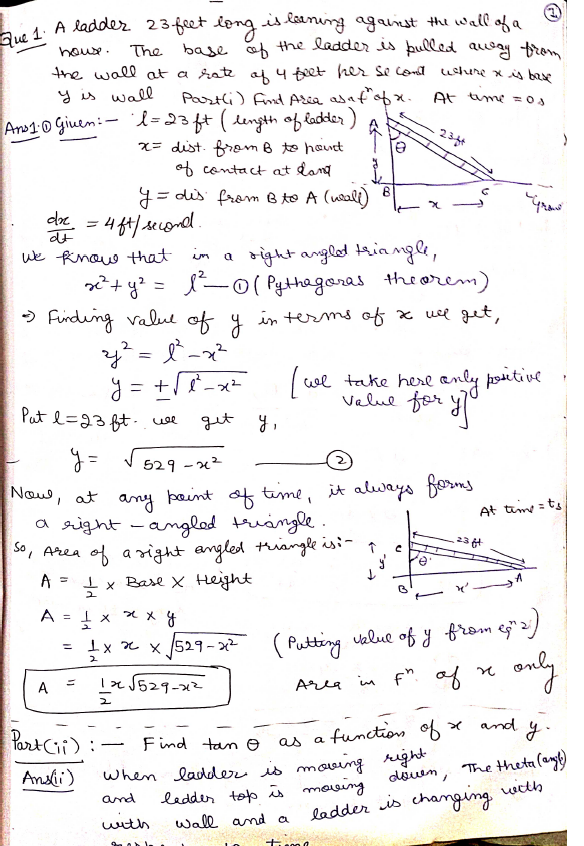 ①
Que 1. A ladder 23 feet long is leaning against the wall of a
house. The base of the ladder is pulled away from
the wall at a rate of 4 feet per second where x is base
y is wall Part(i) Find Area as a fⁿ of x. At time = 0s
Ans 1.① Given:- l = 23 ft (length of ladder)
x = dist. from B to point
of contact at land
y = dis from B to A (wall)
A
23 ft
θ
y
B
x
C
dx/dt = 4 ft/second.
We know that in a right angled triangle,
x² + y² = l² — ① (Pythagoras theorem)
⇒ Finding value of y in terms of x we get,
y² = l² - x²
y = ±√(l² - x²) [we take here only positive
value for y]
Put l = 23 ft. we get y,
y = √(529 - x²) — ②
Now, at any point of time, it always forms
a right-angled triangle.
At time = ts
So, Area of a right angled triangle is:-
c
23 ft
y'
θ'
B
x'
A
A = 1/2 × Base × Height
A = 1/2 × x × y
= 1/2 × x × √(529 - x²) (Putting value of y from eqⁿ 2)
A = 1/2 x √(529 - x²)
Area in fⁿ. of x only
Part(ii) :— Find tan θ as a function of x and y.
Ans(ii) When ladder is moving right
and ladder top is moving down, The theta (angle)
with wall and a ladder is changing with